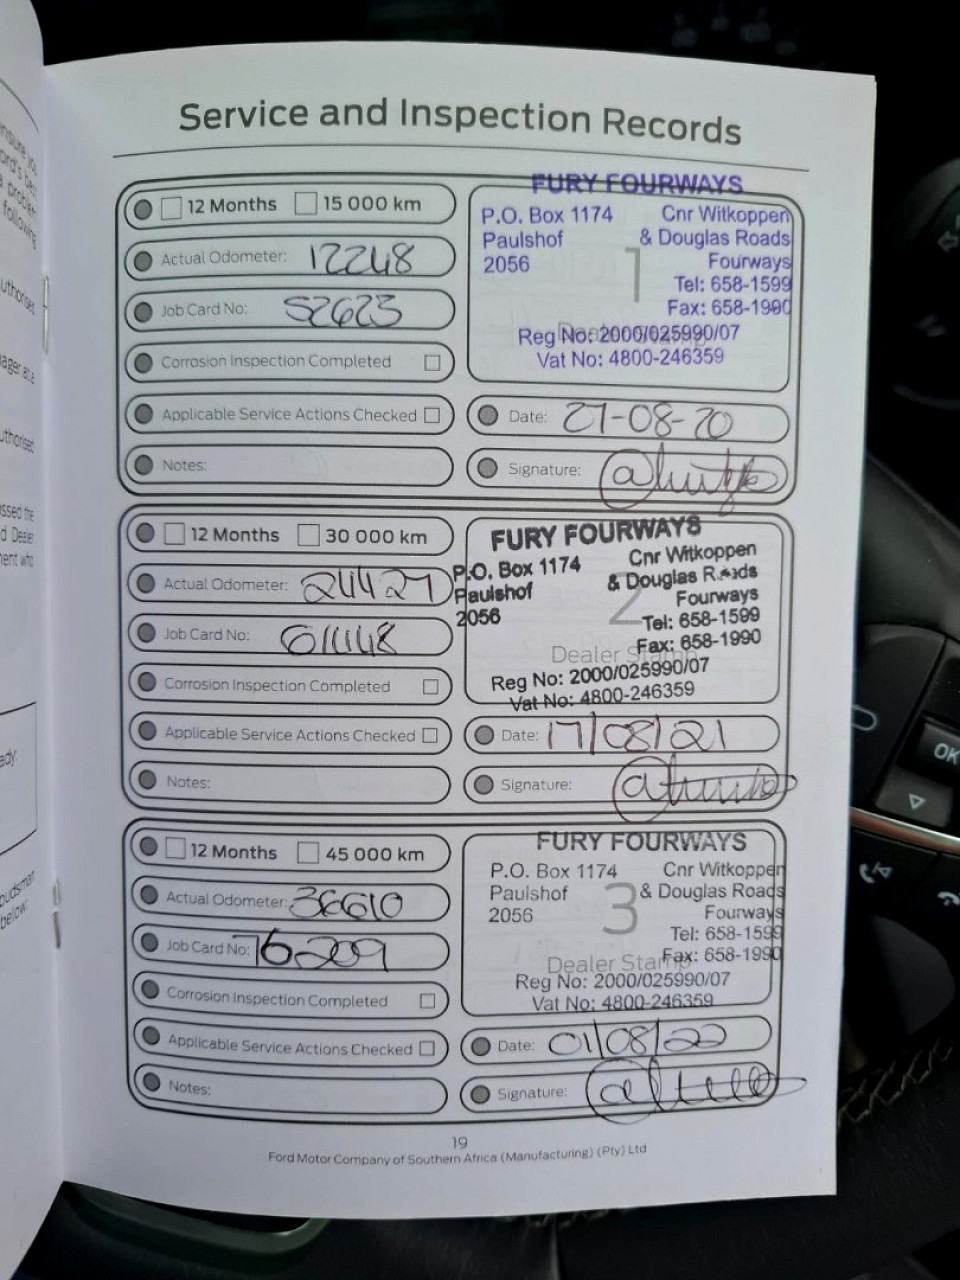 Service and Inspection Records
12 Months 15 000 km
Actual Odometer: 12248
Job Card No: 52623
Corrosion Inspection Completed
Applicable Service Actions Checked
Notes:
FURY FOURWAYS
P.O. Box 1174 Cnr Witkoppen
Paulshof & Douglas Roads
2056 Fourways
1
Tel: 658-1599
Fax: 658-1990
Reg No: 2000/025990/07
Vat No: 4800-246359
Date: 27-08-20
Signature:
12 Months 30 000 km
Actual Odometer: 24427
Job Card No: 61148
Corrosion Inspection Completed
Applicable Service Actions Checked
Notes:
FURY FOURWAYS
P.O. Box 1174 Cnr Witkoppen
Paulshof & Douglas Roads
2056 Fourways
2
Tel: 658-1599
Fax: 658-1990
Dealer Stamp
Reg No: 2000/025990/07
Vat No: 4800-246359
Date: 17/08/21
Signature:
12 Months 45 000 km
Actual Odometer: 36610
Job Card No: 76209
Corrosion Inspection Completed
Applicable Service Actions Checked
Notes:
FURY FOURWAYS
P.O. Box 1174 Cnr Witkoppen
Paulshof & Douglas Roads
2056 Fourways
3
Tel: 658-1599
Fax: 658-1990
Dealer Stamp
Reg No: 2000/025990/07
Vat No: 4800-246359
Date: 01/08/22
Signature:
19
Ford Motor Company of Southern Africa (Manufacturing) (Pty) Ltd
OK